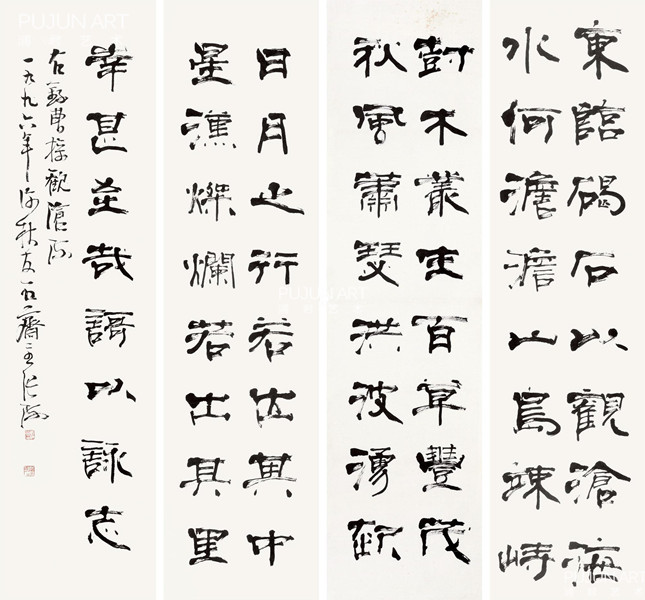 東臨碣石以觀滄海
水何澹澹山島竦峙
樹木叢生百草豐茂
秋風蕭瑟洪波湧起
日月之行若出其中
星漢燦爛若出其里
幸甚至哉謌以詠志
右錄曹操觀滄海
一九九六年秋友石齋主張海
PUJUN ART
PUJUN ART